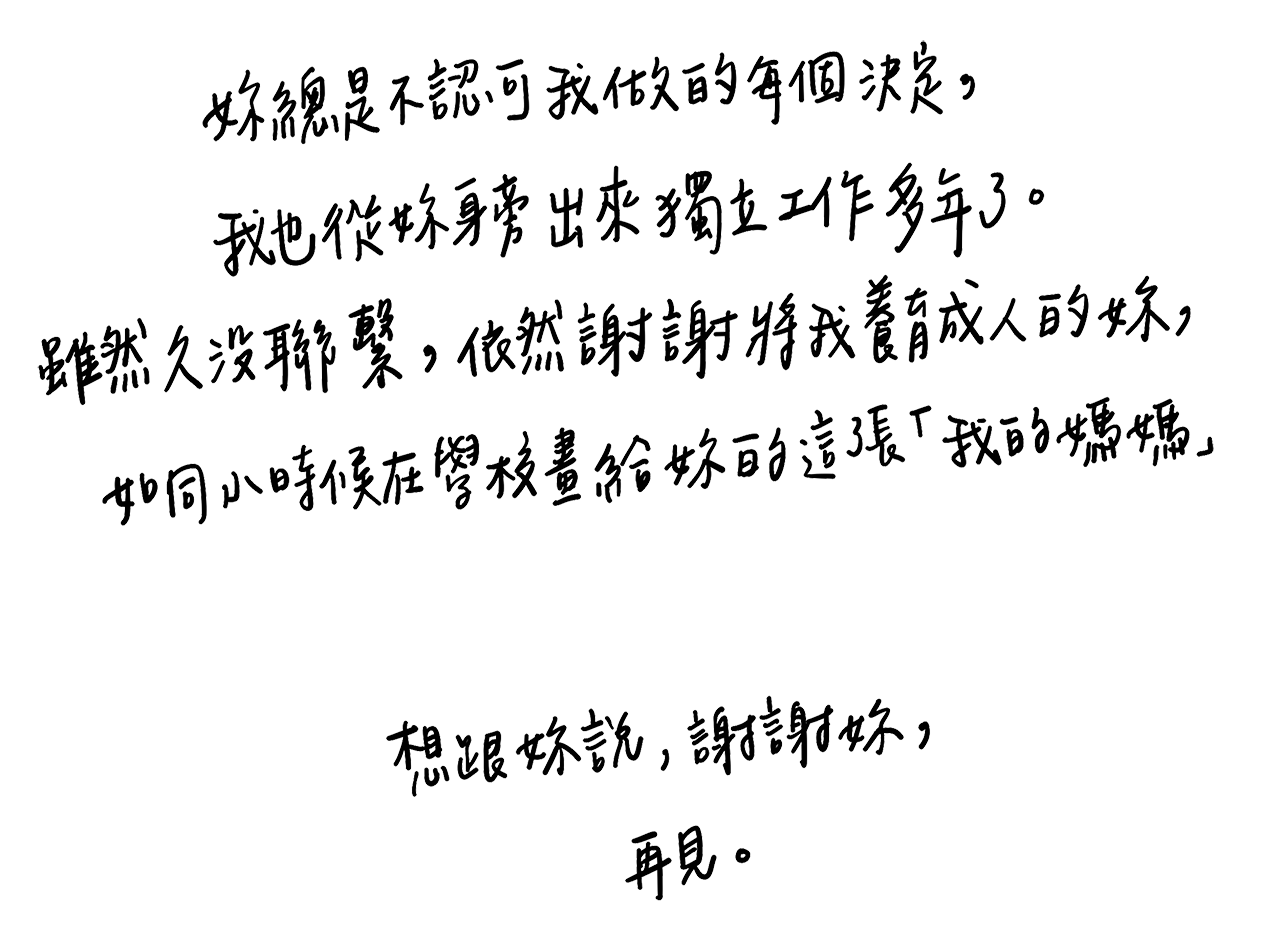 妳總是不認可我做的每個決定，
我也從妳身旁出來獨立工作多年了。
雖然久沒聯繫，依然謝謝將我養育成人的妳，
如同小時候在學校畫給妳的這張「我的媽媽」
想跟妳說，謝謝妳，
再見。